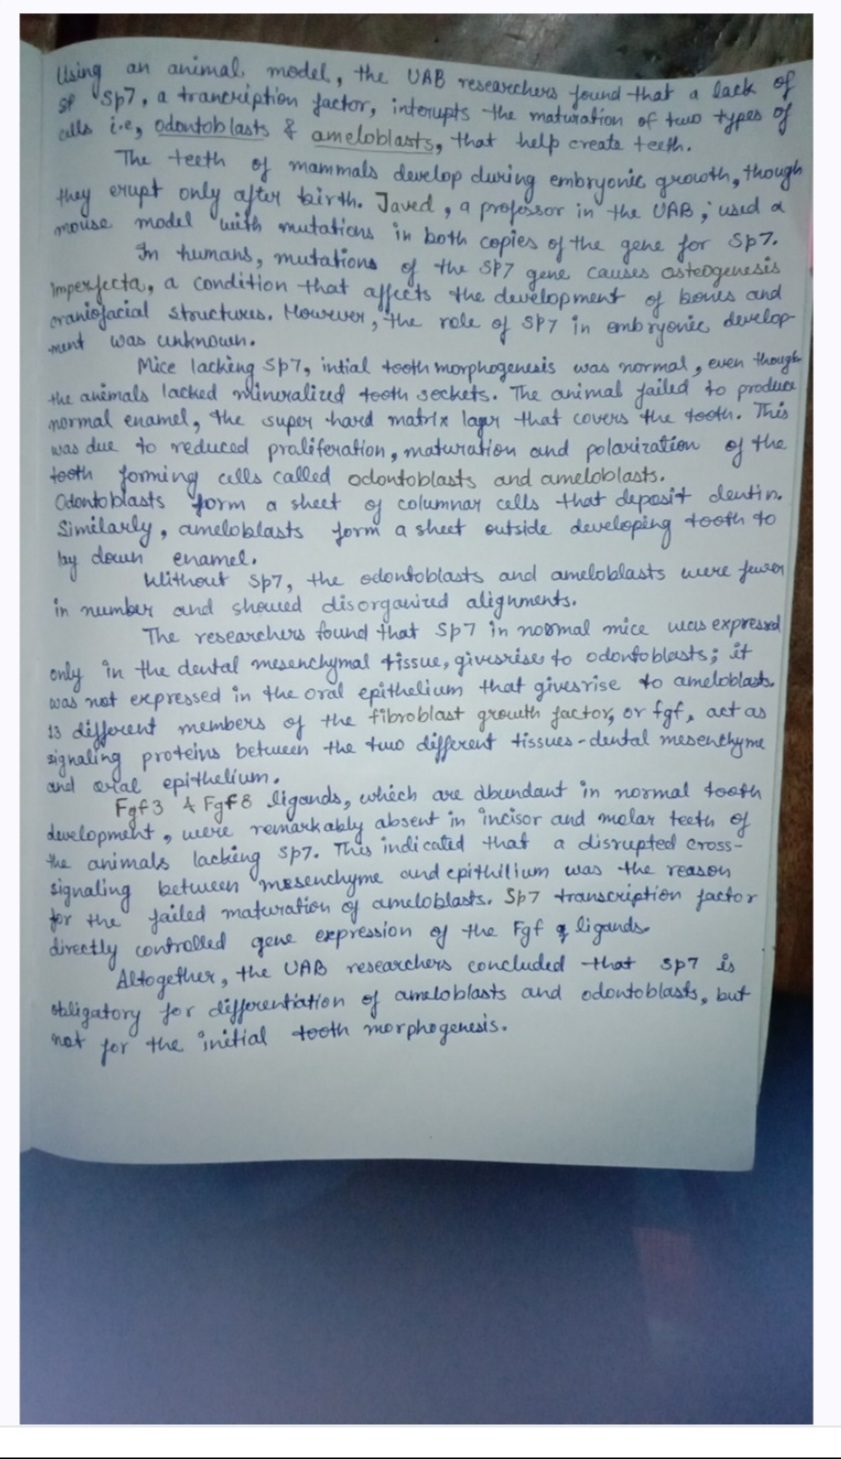 Using an animal model, the UAB researchers found that a lack of
of Sp7, a trancription factor, interupts the maturation of two types of
cells i.e, odontoblasts & ameloblasts, that help create teeth.
The teeth of mammals develop during embryonic growth, though
they erupt only after birth. Javed, a professor in the UAB, used a
mouse model with mutations in both copies of the gene for Sp7.
In humans, mutations of the SP7 gene causes osteogenesis
imperfecta, a condition that affects the development of bones and
craniofacial structures. However, the role of SP7 in embryonic develop-
ment was unknown.
Mice lacking Sp7, intial tooth morphogenesis was normal, even though
the animals lacked mineralized tooth sockets. The animal failed to produce
normal enamel, the super hard matrix layer that covers the tooth. This
was due to reduced proliferation, maturation and polarization of the
tooth forming cells called odontoblasts and ameloblasts.
Odontoblasts form a sheet of columnar cells that deposit dentin.
Similarly, ameloblasts form a sheet outside developing tooth to
lay down enamel.
Without Sp7, the odontoblasts and ameloblasts were fewer
in number and showed disorganized alignments.
The researchers found that Sp7 in normal mice was expressed
only in the dental mesenchymal tissue, givesrise to odontoblasts; it
was not expressed in the oral epithelium that givesrise to ameloblasts.
13 different members of the fibroblast growth factor, or fgf, act as
signaling proteins between the two different tissues - dental mesenchyme
and oral epithelium.
Fgf3 & Fgf8 ligands, which are abundant in normal tooth
development, were remarkably absent in incisor and molar teeth of
the animals lacking Sp7. This indicated that a disrupted cross-
signaling between mesenchyme and epithilium was the reason
for the failed maturation of ameloblasts. Sp7 transcription factor
directly controlled gene expression of the Fgf ligands.
Altogether, the UAB researchers concluded that Sp7 is
obligatory for differentiation of ameloblasts and odontoblasts, but
not for the initial tooth morphogenesis.